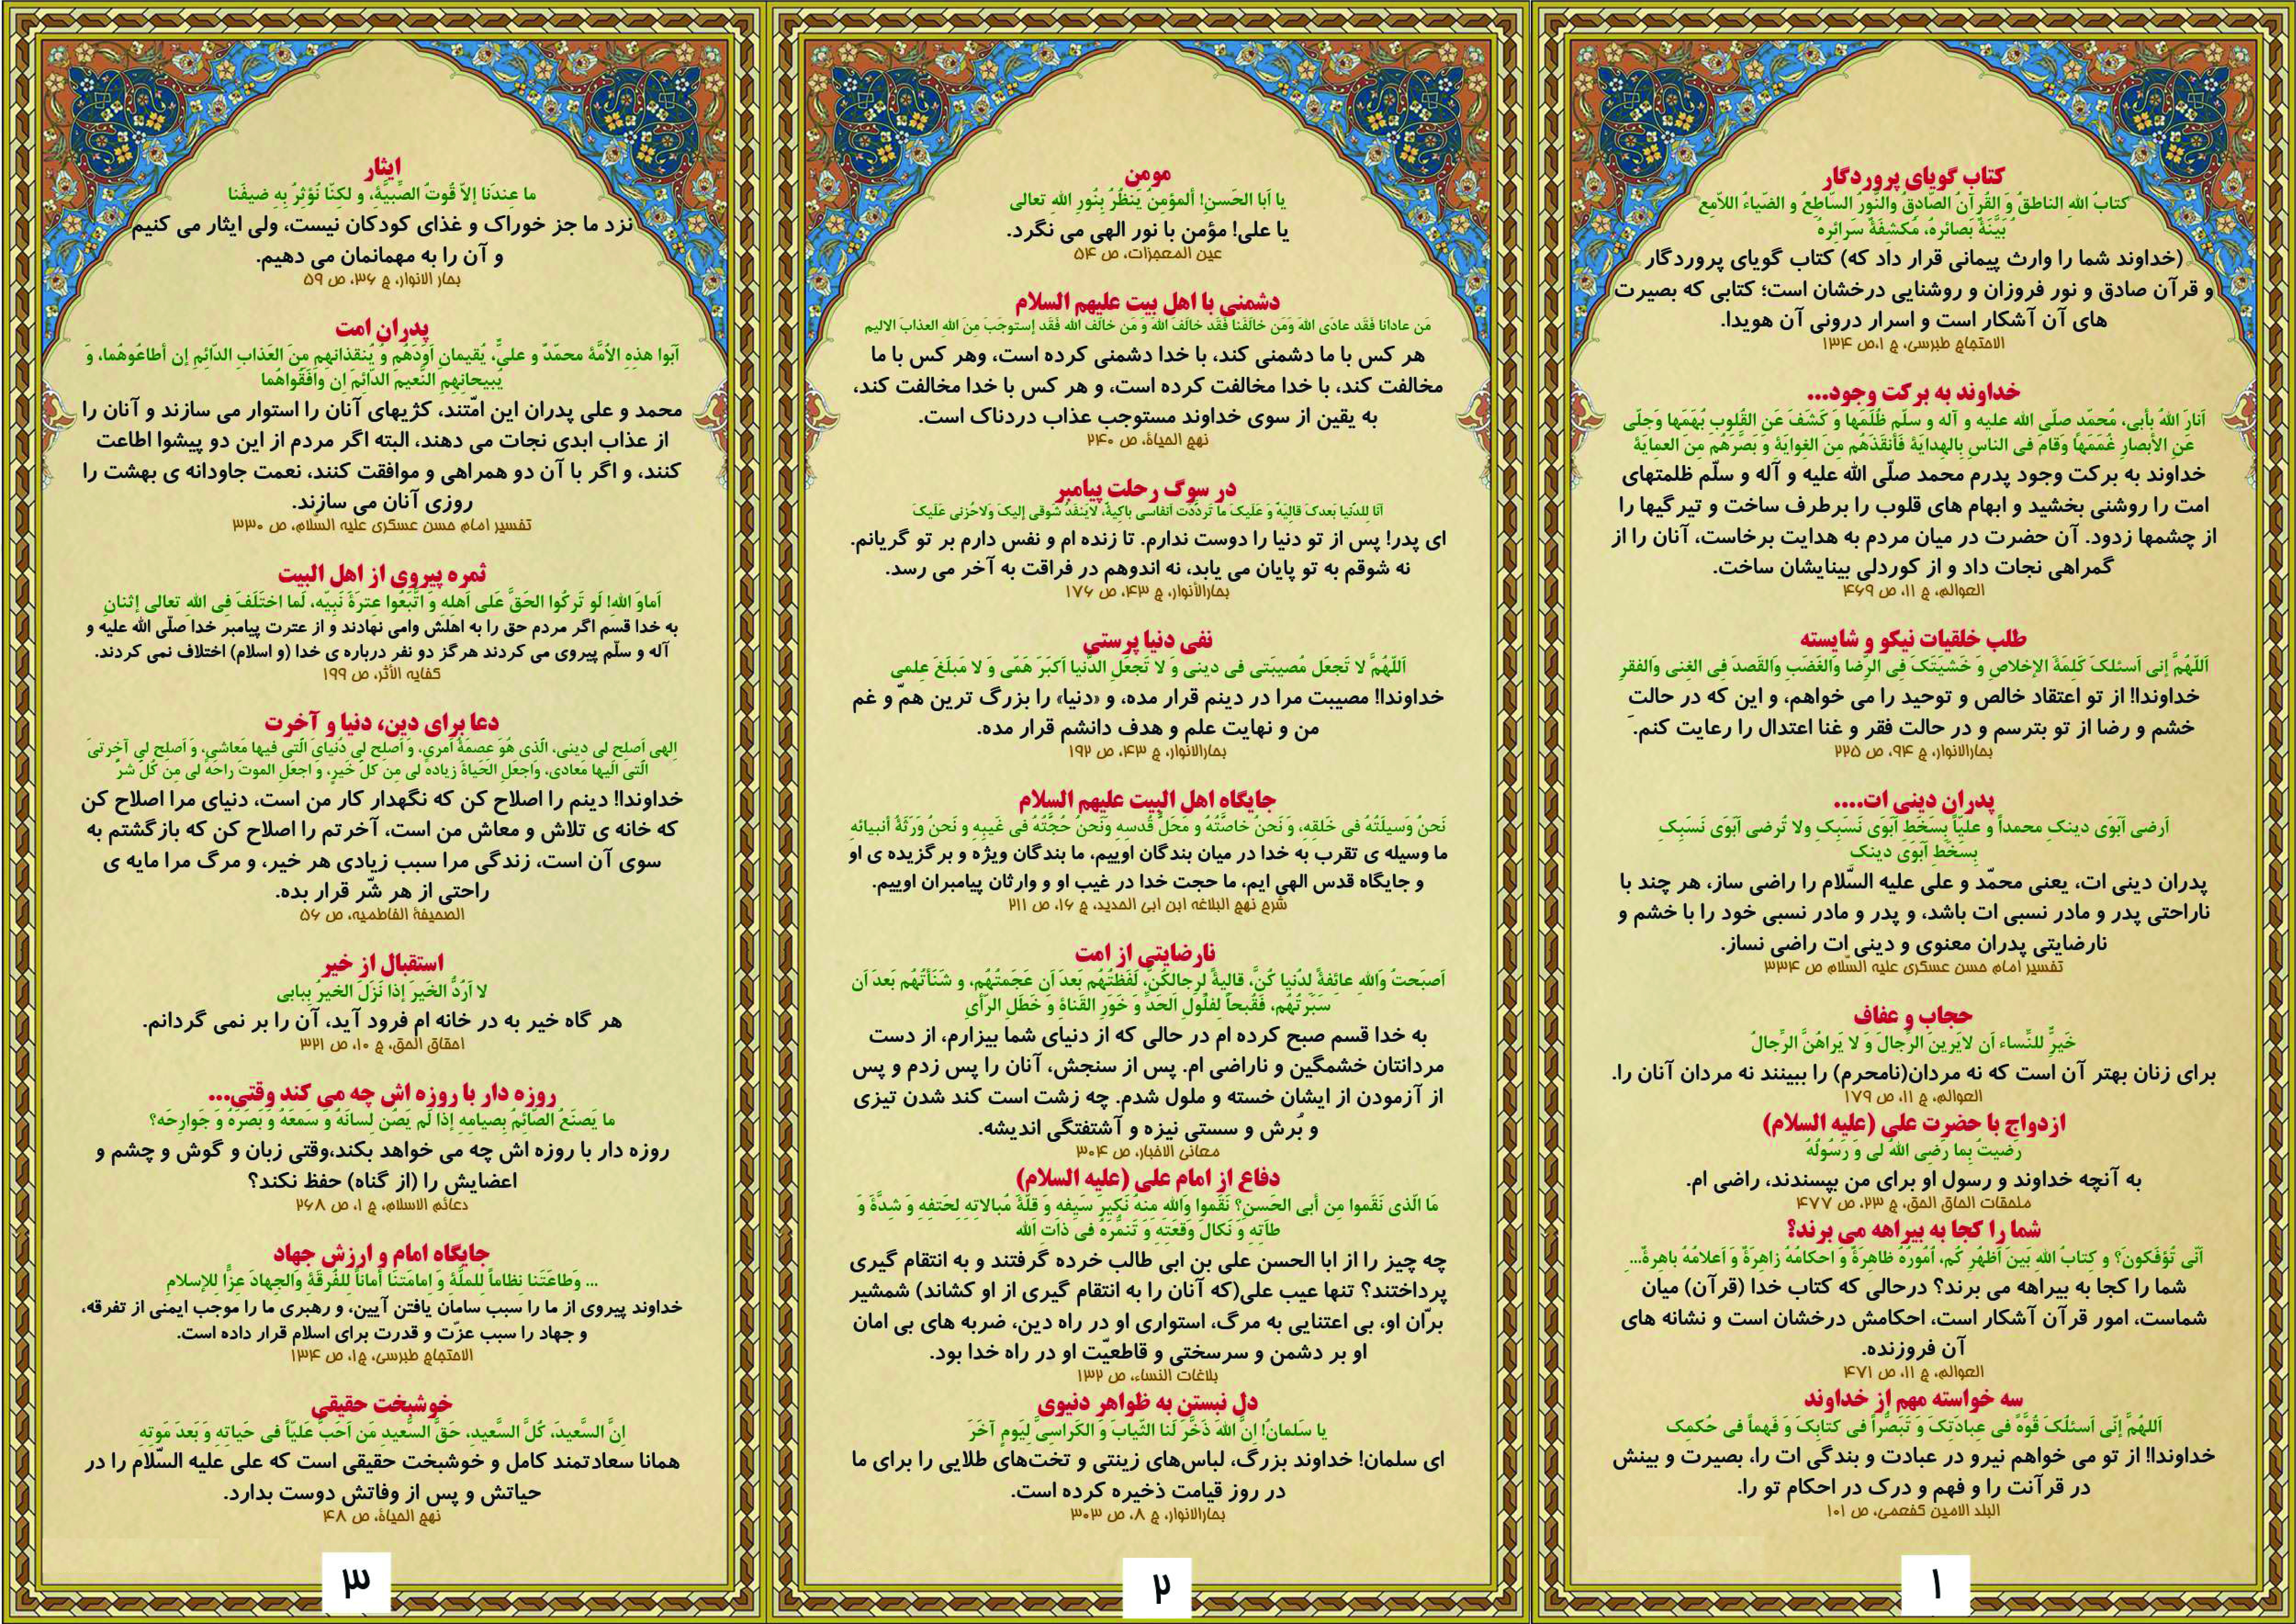 کتاب گویای پروردگار
کتابُ اللهِ الناطقُ وَ القُرآنُ الصّادِقُ والنّورُ السّاطِعُ و الضّیاءُ اللاّمِع
بَیِّنَةٌ بَصائرهُ، مُکشِفَةٌ سَرائِرهُ
(خداوند شما را وارث پیمانی قرار داد که) کتاب گویای پروردگار
و قرآن صادق و نور فروزان و روشنایی درخشان است؛ کتابی که بصیرت
های آن آشکار است و اسرار درونی آن هویدا.
الاحتجاج طبرسی، ج ۱،ص ۱۳۴
خداوند به برکت وجود...
اَنارَ اللهُ بأبی، مُحمّدٍ صلّی الله علیه و آله و سلّم ظُلَمَها وَ کَشَفَ عَنِ القُلوبِ بُهَمَها وَجَلّی
عَنِ الأبصارِ غُمَمَها وقامَ فی الناسِ بِالهِدایَةِ فَأنقَذَهُم مِنَ الغِوایَةِ وَ بَصَّرَهُم مِنَ العمایَةِ
خداوند به برکت وجود پدرم محمد صلّی الله علیه و آله و سلّم ظلمتهای
امت را روشنی بخشید و ابهام های قلوب را برطرف ساخت و تیرگیها را
از چشمها زدود. آن حضرت در میان مردم به هدایت برخاست، آنان را از
گمراهی نجات داد و از کوردلی بینایشان ساخت.
العوالم، ج ۱۱، ص ۴۶۹
طلب خلقیات نیکو و شایسته
اَللّهُمَّ إنی اَسئلکَ کَلِمَةَ الإخلاصِ وَ خَشیَتَکَ فِی الرِّضا وَالغَضَبِ وَالقَصدَ فِی الغِنی وَالفقرِ
خداوندا! از تو اعتقاد خالص و توحید را می خواهم، و این که در حالت
خشم و رضا از تو بترسم و در حالت فقر و غنا اعتدال را رعایت کنم.
بحارالانوار، ج ۹۴، ص ۲۲۵
پدران دینی ات....
اَرضی اَبَوَی دینکِ محمداً و علیّاً بِسَخَطِ اَبَوَی نَسَبِکِ ولا تَرضی اَبَوَی نَسَبِکِ
بِسَخَطِ اَبَوَی دینک
پدران دینی ات، یعنی محمّد و علی علیه السّلام را راضی ساز، هر چند با
ناراحتی پدر و مادر نسبی ات باشد، و پدر و مادر نسبی خود را با خشم و
نارضایتی پدران معنوی و دینی ات راضی نساز.
تفسیر امام حسن عسکری علیه السّلام ص ۳۳۴
حجاب و عفاف
خَیرٌ للنِّساء اَن لایَرینَ الرِّجالَ وَ لا یَراهُنَّ الرِّجالُ
برای زنان بهتر آن است که نه مردان(نامحرم) را ببینند نه مردان آنان را.
العوالم، ج ۱۱، ص ۱۷۹
ازدواج با حضرت علی (علیه السلام)
رَضیتُ بِما رَضِی اللهُ لی وَ رَسُولُهُ
به آنچه خداوند و رسول او برای من بپسندند، راضی ام.
ملحقات الحاق الحق، ج ۲۳، ص ۴۷۷
شما را کجا به بیراهه می برند؟
اَنّی تُؤفَکونَ؟ و کِتابُ اللهِ بَینَ اَظهُرِ کُم، اُمُورُهُ ظاهِرَةٌ وَ احکامُهُ زاهِرَةٌ وَ اَعلامُهُ باهِرةٌ...
شما را کجا به بیراهه می برند؟ درحالی که کتاب خدا (قرآن) میان
شماست، امور قرآن آشکار است، احکامش درخشان است و نشانه های
آن فروزنده.
العوالم، ج ۱۱، ص ۴۷۱
سه خواسته مهم از خداوند
اَللهُمَّ إنّی اَسئلُکَ قُوَّةً فی عِبادَتِکَ وَ تَبَصُّراً فی کتابِکَ وَ فَهماً فی حُکمِکَ
خداوندا! از تو می خواهم نیرو در عبادت و بندگی ات را، بصیرت و بینش
در قرآنت را و فهم و درک در احکام تو را.
البلد الامین کفعمی، ص ۱۰۱
۱
مومن
یا اَبا الحَسنِ! اَلمؤمِنُ یَنظُرُ بِنُورِ اللهِ تعالی
یا علی! مؤمن با نور الهی می نگرد.
عین المعجزات، ص ۵۴
دشمنی با اهل بیت علیهم السلام
مَن عادانا فَقَد عادَی اللهَ وَمَن خالَفَنا فَقَد خالَفَ اللهَ وَ مَن خالَف الله فَقَد إستوجَبَ مِنَ اللهِ العذابَ الالیم
هر کس با ما دشمنی کند، با خدا دشمنی کرده است، وهر کس با ما
مخالفت کند، با خدا مخالفت کرده است، و هر کس با خدا مخالفت کند،
به یقین از سوی خداوند مستوجب عذاب دردناک است.
نهج الحیاة، ص ۲۴۰
در سوگ رحلت پیامبر
اَنَا لِلدُّنیا بَعدکَ قالِیَهٌ وَ عَلَیکَ ما تَردَّدَت اَنفاسی باکِیهٌ، لایَنفَدُ شَوقی إلیکَ وَلاحُزنی عَلَیک
ای پدر! پس از تو دنیا را دوست ندارم. تا زنده ام و نفس دارم بر تو گریانم.
نه شوقم به تو پایان می یابد، نه اندوهم در فراقت به آخر می رسد.
بحارالأنوار، ج ۴۳، ص ۱۷۶
نفی دنیا پرستی
اَللّهُمَّ لا تَجعَل مُصیبَتی فی دینی وَ لا تَجعَلِ الدُّنیا اَکبَرَ هَمّی وَ لا مَبلَغَ عِلمِی
خداوندا! مصیبت مرا در دینم قرار مده، و «دنیا» را بزرگ ترین همّ و غم
من و نهایت علم و هدف دانشم قرار مده.
بحارالانوار، ج ۴۳، ص ۱۹۲
جایگاه اهل البیت علیهم السلام
نَحنُ وَسیلَتُهُ فی خَلقِهِ، وَ نَحنُ خاصَّتُهُ و مَحَلُّ قُدسِهِ وَنَحنُ حُجَّتُهُ فی غَیبِهِ و نَحنُ وَرَثَةُ اَنبیائه
ما وسیله ی تقرب به خدا در میان بندگان اوییم، ما بندگان ویژه و برگزیده ی او
و جایگاه قدس الهی ایم، ما حجت خدا در غیب او و وارثان پیامبران اوییم.
شرح نهج البلاغه ابن ابی الحدید، ج ۱۶، ص ۲۱۱
نارضایتی از امت
اَصبَحتُ وَاللهِ عائِفةً لدُنیا کُنَّ، قالیةً لِرجالکُنَّ، لَفَظتُهُم بَعدَ اَن عَجَمتُهُم، و شَنَأتُهُم بَعدَ اَن
سَبَرتُهُم، فَقُبحاً لِفلُولِ اَلحدِّ وَ خَورِ القَناةِ وَ خَطَلِ الرَأیِ
به خدا قسم صبح کرده ام در حالی که از دنیای شما بیزارم، از دست
مردانتان خشمگین و ناراضی ام. پس از سنجش، آنان را پس زدم و پس
از آزمودن از ایشان خسته و ملول شدم. چه زشت است کند شدن تیزی
و بُرش و سستی نیزه و آشتفتگی اندیشه.
معانی الاخبار، ص ۳۰۴
دفاع از امام علی (علیه السلام)
مَا الّذی نَقَموا مِن أبی الحَسنِ؟ نَقَموا وَاللهِ مِنهُ نَکیرَ سَیفِه وَ قِلَّةَ مُبالاتِهِ لِحَتفِهِ وَ شِدَّةَ وَ
طأتِهِ وَ نَکالَ وَقعَتِهِ وَ تَنَمُّرَهُ فی ذَاتِ الله
چه چیز را از ابا الحسن علی بن ابی طالب خرده گرفتند و به انتقام گیری
پرداختند؟ تنها عیب علی(که آنان را به انتقام گیری از او کشاند) شمشیر
برّان او، بی اعتنایی به مرگ، استواری او در راه دین، ضربه های بی امان
او بر دشمن و سرسختی و قاطعیّت او در راه خدا بود.
بلاغات النساء، ص ۱۳۲
دل نبستن به ظواهر دنیوی
یا سَلمانُ! اِنَّ اللهَ ذَخَّرَ لَنا الثّیابَ وَ الکَراسِیَّ لِیَومٍ آخَرَ
ای سلمان! خداوند بزرگ، لباس‌های زینتی و تخت‌های طلایی را برای ما
در روز قیامت ذخیره کرده است.
بحارالانوار، ج ۸، ص ۳۰۳
۲
ایثار
ما عِندَنا إلاّ قُوتُ الصِّبیَّةِ، و لکِنّا نُؤثِرُ بِهِ ضیفَنا
نزد ما جز خوراک و غذای کودکان نیست، ولی ایثار می کنیم
و آن را به مهمانمان می دهیم.
بحار الانوار، ج ۳۶، ص ۵۹
پدران امت
اَبَوا هذِهِ الاُمَّةِ محمّدٌ و علیٌّ، یُقیمانِ اَوَدَهُم وَ یُنقِذانِهِم مِنَ العَذابِ الدّائِمِ إن اَطاعُوهُما، وَ
یُبیحانِهِمِ النَّعیمَ الدّائِمَ اِن وافَقُواهُما
محمد و علی پدران این امّتند، کژیهای آنان را استوار می سازند و آنان را
از عذاب ابدی نجات می دهند، البته اگر مردم از این دو پیشوا اطاعت
کنند، و اگر با آن دو همراهی و موافقت کنند، نعمت جاودانه ی بهشت را
روزی آنان می سازند.
تفسیر امام حسن عسکری علیه السّلام، ص ۳۳۰
ثمره پیروی از اهل البیت
اَماوَ اللهِ! لَو تَرکُوا الحَقَّ عَلی اَهلهِ وَ اتَّبَعُوا عترَةَ نَبیِّه، لَما اختَلَفَ فِی اللهِ تعالی إثنانِ
به خدا قسم اگر مردم حق را به اهلش وامی نهادند و از عترت پیامبر خدا صلّی الله علیه و
آله و سلّم پیروی می کردند هرگز دو نفر درباره ی خدا (و اسلام) اختلاف نمی کردند.
کفایه الأثر، ص ۱۹۹
دعا برای دین، دنیا و آخرت
اِلهی اَصلِح لی دینی، الّذی هُوَ عِصمَةُ اَمری، وَ اَصلِح لی دُنیایَ الّتی فیها مَعاشی، وَ اَصلِح لی آخرتیَ
الّتی الَیها مَعادی، وَاجعَلِ الحَیاةَ زیادهً لی مِن کلِّ خَیرٍ، وَ اجعَلِ الموتَ راحَهً لی مِن کُلِّ شَرٍّ
خداوندا! دینم را اصلاح کن که نگهدار کار من است، دنیای مرا اصلاح کن
که خانه ی تلاش و معاش من است، آخرتم را اصلاح کن که بازگشتم به
سوی آن است، زندگی مرا سبب زیادی هر خیر، و مرگ مرا مایه ی
راحتی از هر شّر قرار بده.
الصحیفة الفاطمیه، ص ۵۶
استقبال از خیر
لا اَرُدُّ الخَیرَ إذا نَزَلَ الخَیرُ بِبابی
هر گاه خیر به در خانه ام فرود آید، آن را بر نمی گردانم.
احقاق الحق، ج ۱۰، ص ۳۲۱
روزه دار با روزه اش چه می کند وقتی...
ما یَصنَعُ الصّائِمُ بِصیامِهِ إذا لَم یَصُن لِسانَهُ وَ سَمعَهُ وَ بَصَرَهُ وَ جَوارِحَه؟
روزه دار با روزه اش چه می خواهد بکند،وقتی زبان و گوش و چشم و
اعضایش را (از گناه) حفظ نکند؟
دعائم الاسلام، ج ۱، ص ۲۶۸
جایگاه امام و ارزش جهاد
... وَطاعَتَنا نِظاماً لِلملَّةِ وَ اِمامَتنَا اَماناً لِلفُرقَةِ وَالجِهادَ عِزًّا للإسلامِ
خداوند پیروی از ما را سبب سامان یافتن آیین، و رهبری ما را موجب ایمنی از تفرقه،
و جهاد را سبب عزّت و قدرت برای اسلام قرار داده است.
الاحتجاج طبرسی، ج۱، ص ۱۳۴
خوشبخت حقیقی
اِنَّ السَّعیدَ، کُلَّ السَّعیدِ، حَقَّ السَّعیدِ مَن اَحَبَّ عَلیّاً فی حَیاتِهِ وَ بَعدَ مَوتِهِ
همانا سعادتمند کامل و خوشبخت حقیقی است که علی علیه السّلام را در
حیاتش و پس از وفاتش دوست بدارد.
نهج الحیاة، ص ۴۸
۳